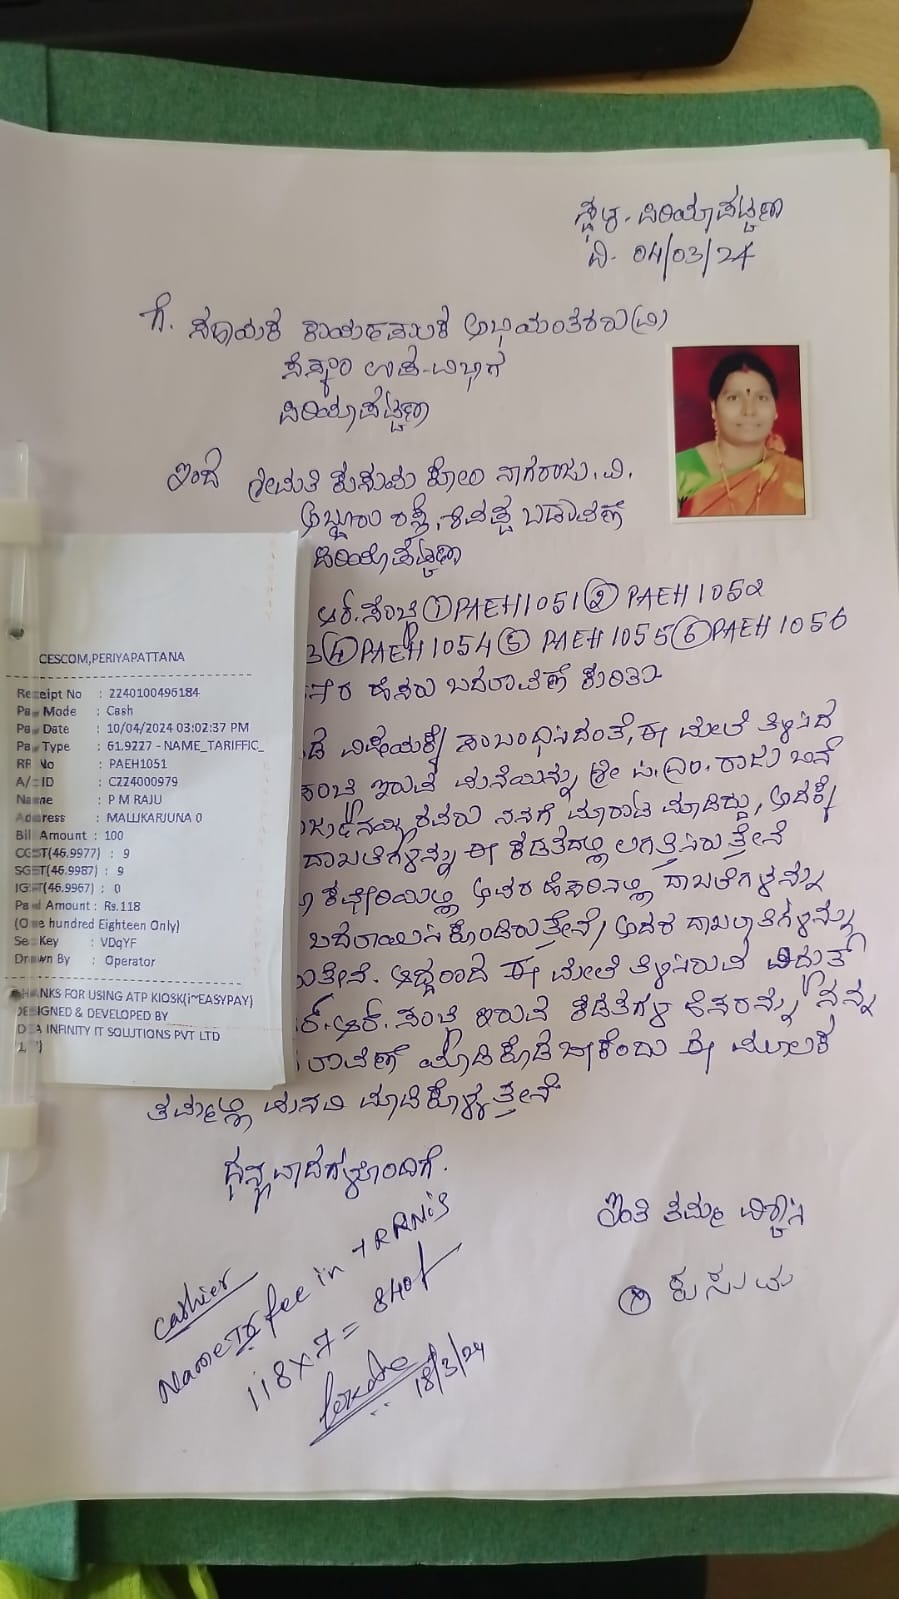 ಸ್ಥಳ. ಪಿರಿಯಾಪಟ್ಟಣ
ದಿ. 04/03/24
ಗೆ. ಸಹಾಯಕ ಕಾರ್ಯಪಾಲಕ ಅಭಿಯಂತರರು(ವಿ)
ಸೆಸ್ಕಾಂ ಉಪ-ವಿಭಾಗ
ಪಿರಿಯಾಪಟ್ಟಣ
ಇಂದ ಶ್ರೀಮತಿ ಕುಸುಮ ಕೋಂ ನಾಗರಾಜು. ವಿ.
ರಸ್ತೆ, ಬಡಾವಣೆ
ಪಿರಿಯಾಪಟ್ಟಣ
ಆರ್.ನಂಬ್ರ ① PAEH1051 ② PAEH 1052
3 ④ PAEH 1054 ⑤ PAEH 1055 ⑥ PAEH 1056
ರ ಹೆಸರು ಬದಲಾವಣೆ ಕುರಿತು
ವಿಷಯಕ್ಕೆ ಸಂಬಂಧಿಸಿದಂತೆ, ಈ ಮೇಲೆ ತಿಳಿಸಿದ
ಇರುವ ಮನೆಯನ್ನು ಶ್ರೀ ಪಿ.ಎಂ. ರಾಜು ಬಿನ್
ರವರು ನನಗೆ ಮಾರಾಟ ಮಾಡಿದ್ದು, ಅದಕ್ಕೆ
ದಾಖಲೆಗಳನ್ನು ಈ ಕಡತದಲ್ಲಿ ಲಗತ್ತಿಸಿರುತ್ತೇನೆ
ಕಛೇರಿಯಲ್ಲಿ ದಾಖಲೆಗಳನ್ನು
ಬದಲಾಯಿಸಿಕೊಂಡಿರುತ್ತೇನೆ, ಅದರ ದಾಖಲಾತಿಗಳನ್ನು
ಆದ್ದರಿಂದ ಈ ಮೇಲೆ ತಿಳಿಸಿರುವ ವಿದ್ಯುತ್
ಆರ್. ನಂಬ್ರ ಇರುವ ಕಡತಗಳ ಹೆಸರನ್ನು ನನ್ನ
ಮಾಡಿಕೊಡಬೇಕೆಂದು ಈ ಮೂಲಕ
ತಮ್ಮಲ್ಲಿ ಮನವಿ ಮಾಡಿಕೊಳ್ಳುತ್ತೇನೆ
ಧನ್ಯವಾದಗಳೊಂದಿಗೆ.
ಇಂತಿ ತಮ್ಮ ವಿಶ್ವಾಸಿ
ಕುಸುಮ
cashier
Name Tr fee in TRANIS
118x7 =
18/3/24
CESCOM,PERIYAPATTANA
Receipt No : 2240100496184
Pay Mode : Cash
Pay Date : 10/04/2024 03:02:37 PM
Pay Type : 61.9227 - NAME_TARIFFIC_
RR No : PAEH1051
A/c ID : CZZ4000979
Name : P M RAJU
Address : MALLIKARJUNA 0
Bill Amount : 100
CGST(46.9977) : 9
SGST(46.9987) : 9
IGST(46.9967) : 0
Paid Amount : Rs.118
(One hundred Eighteen Only)
Sec Key : VDqYF
Drawn By : Operator
THANKS FOR USING ATP KIOSK(i~EASYPAY)
DESIGNED & DEVELOPED BY
IDEA INFINITY IT SOLUTIONS PVT LTD